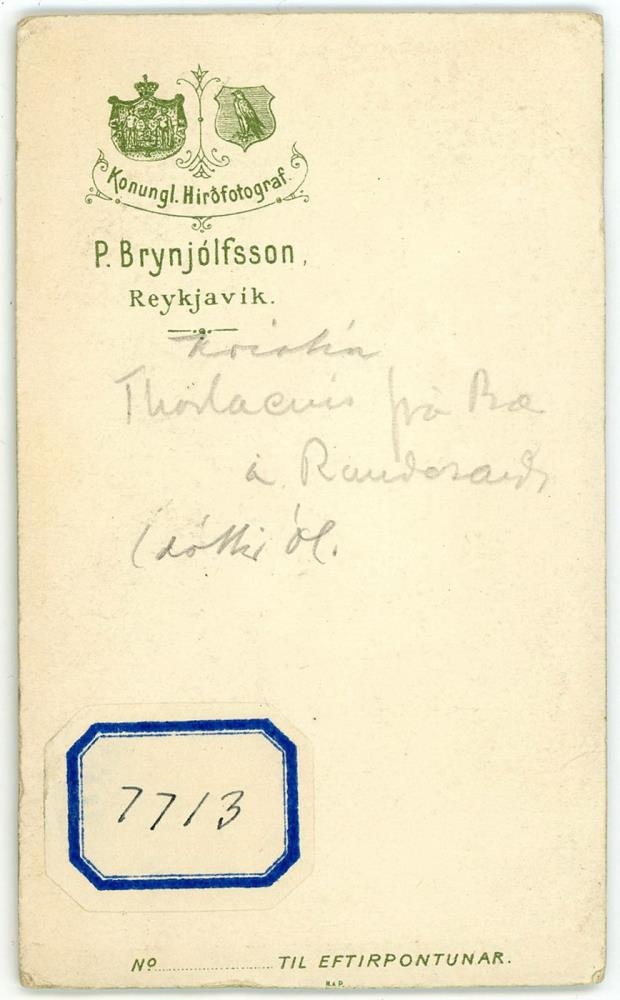 Konungl. Hirðfotograf.
P. Brynjólfsson,
Reykjavík.
Kristín
Thorlacius frá Bæ
á Rauðasandi
(dóttir Ól.
7713
No TIL EFTIRPÖNTUNAR.